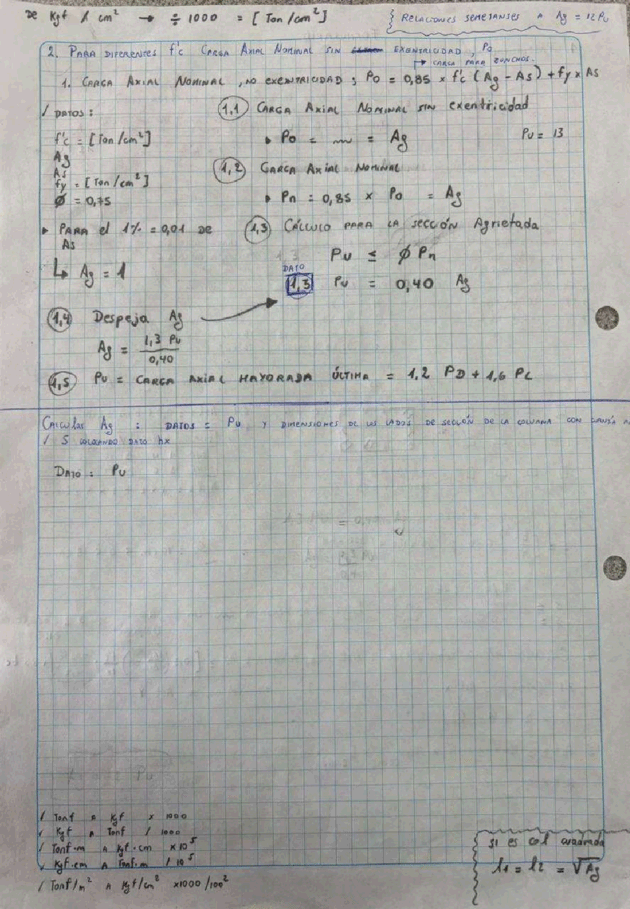 DE Kgf / cm² → ÷ 1000 = [Ton/cm²]
RELACIONES SEMEJANTES A Ag = 12 Pu
2. PARA DIFERENTES f'c CARGA AXIAL NOMINAL SIN EXENTRICIDAD, Po
↳ CARGA PARA ZUNCHOS.
1. CARGA AXIAL NOMINAL, NO EXENTRICIDAD; Po = 0,85 × f'c (Ag - As) + fy × As
/ DATOS:
f'c = [Ton/cm²]
Ag
As
fy = [Ton/cm²]
Ø = 0,75
▸ PARA el 1% = 0,01 DE
As
↳ Ag = 1
1,1 CARGA AXIAL NOMINAL SIN exentricidad
▸ Po = = Ag
Pu = 13
1,2 CARGA AXIAL NOMINAL
▸ Pn = 0,85 × Po = Ag
1,3 CÁLCULO PARA LA SECCIÓN Agrietada
Pu ≤ Ø Pn
DATO
1,3 Pu = 0,40 Ag
1,4 Despeja Ag
Ag = 1,3 Pu / 0,40
1,5 Pu = CARGA AXIAL MAYORADA ÚLTIMA = 1,2 PD + 1,6 PL
CALCULAR Ag : DATOS = Pu Y DIMENSIONES DE LOS LADOS DE SECCIÓN DE LA COLUMNA CON
DATO hx
DATO: Pu
/ Tonf a Kgf × 1000
✓ Kgf a Tonf / 1000
✓ Tonf·m a Kgf·cm ×10⁵
✓ Kgf·cm a Tonf·m / 10⁵
/ Tonf/m² a Kgf/cm² ×1000/100²
si es col cuadrada
l1 = l2 = √Ag